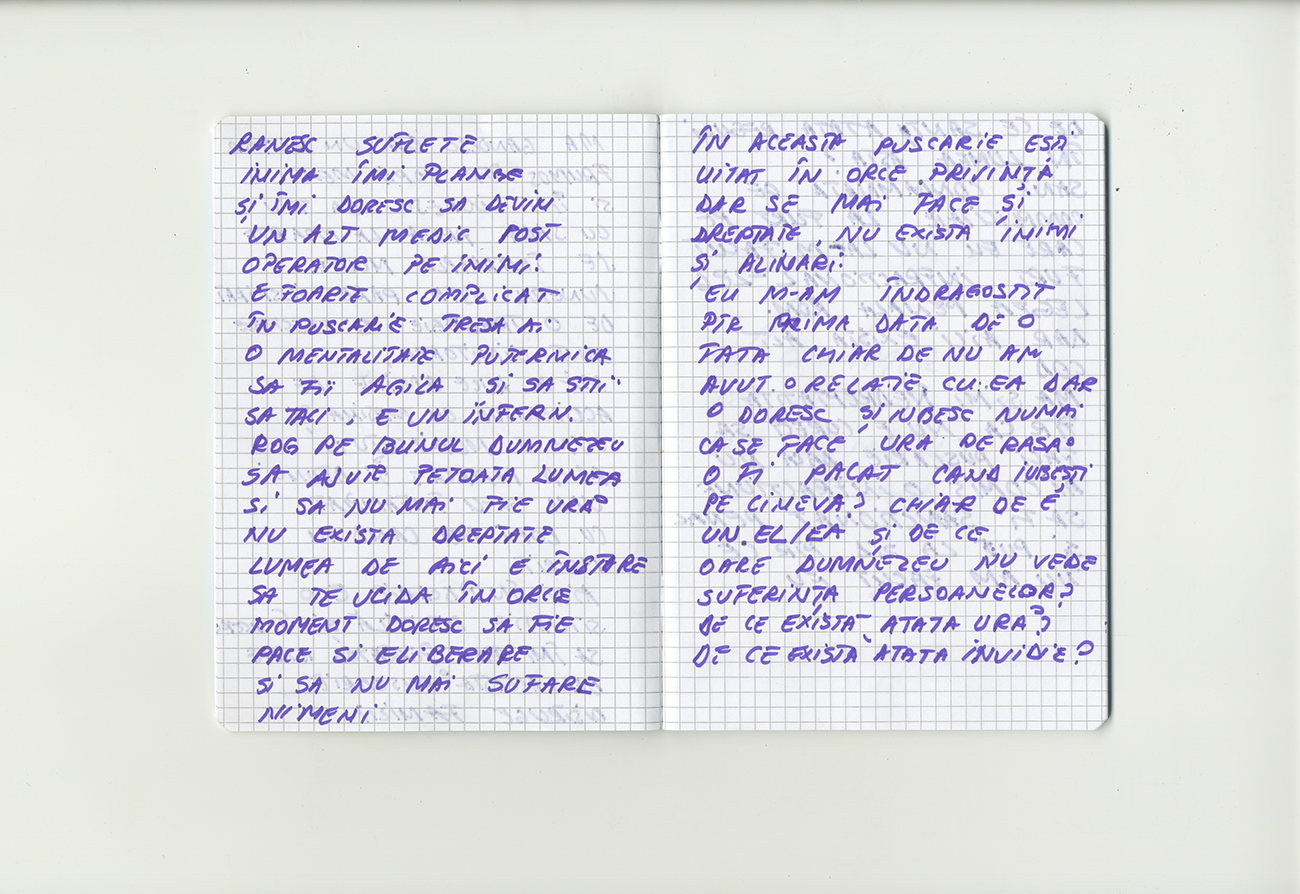 RANESC SUFLETE
INIMA ÎMI PLANGE
ȘI ÎMI DORESC SA DEVIN
UN ALT MEDIC POST
OPERATOR PE INIMI!
E FOARTE COMPLICAT
ÎN PUSCARIE TRE SA AI
O MENTALITATE PUTERNICA
SA FII AGILA SI SA STII
SA TACI, E UN INFERN.
ROG PE BUNUL DUMNEZEU
SA AJUTE PE TOATA LUMEA
SI SA NU MAI FIE URA
NU EXISTA DREPTATE
LUMEA DE AICI E ÎNSTARE
SA TE UCIDA ÎN ORCE
MOMENT DORESC SA FIE
PACE SI ELIBERARE
SI SA NU MAI SUFARE
NIMENI
ÎN ACEASTA PUSCARIE ESTI
UITAT ÎN ORCE PRIVINȚĂ
DAR SE MAI FACE ȘI
DREPTATE, NU EXISTA INIMI
ȘI ALINARI!
EU M-AM ÎNDRAGOSTIT
PTR PRIMA DATA DE O
FATA CHIAR DE NU AM
AVUT O RELATIE CU EA DAR
O DORESC ȘI IUBESC NUMAI
CA SE FACE URA DE RASA
O FI PACAT CAND IUBEȘTI
PE CINEVA? CHIAR DE E
UN EL/EA ȘI DE CE
OARE DUMNEZEU NU VEDE
SUFERINȚA PERSOANELOR?
DE CE EXISTA ATATA URA?
DE CE EXISTA ATATA INVIDIE?